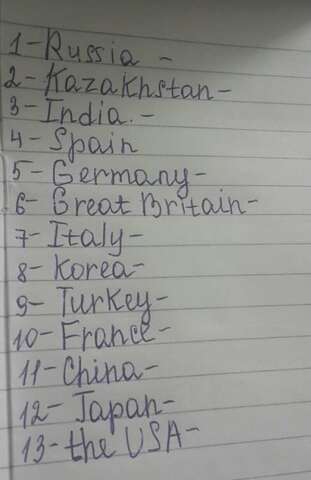 1-Russia -
2-Kazakhstan-
3-India.-
4-Spain
5-Germany-
6-Great Britain-
7-Italy-
8-Korea-
9-Turkey-
10-France-
11-China-
12-Japan-
13-the USA-